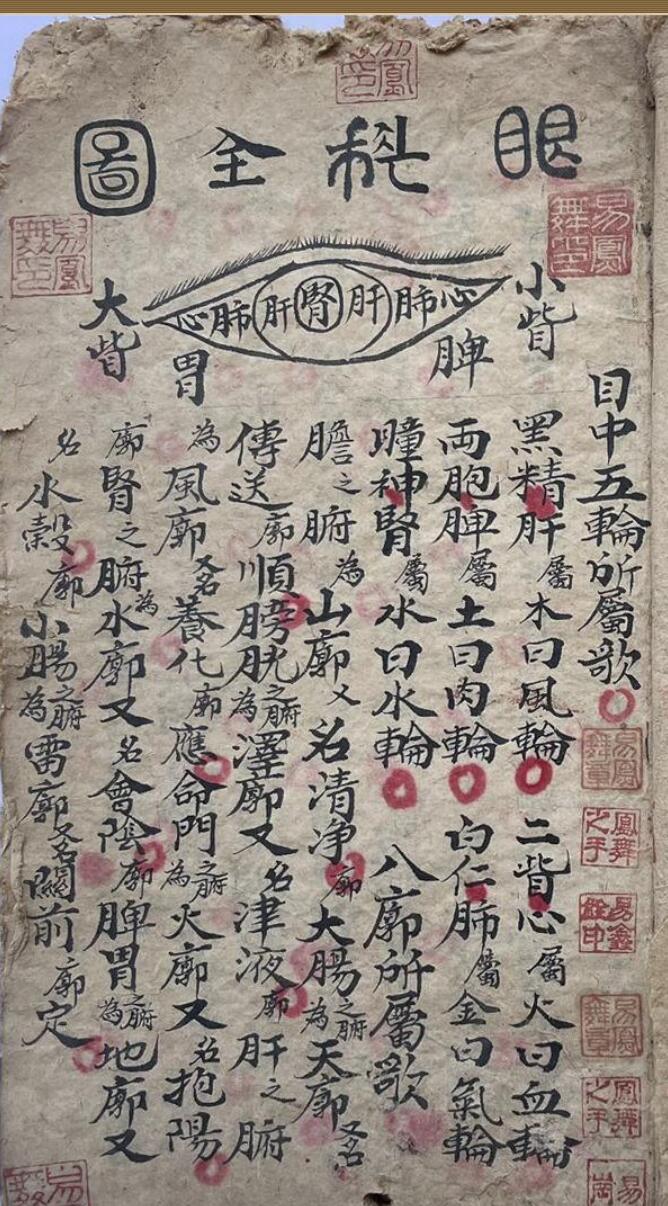 眼科全圖
小眥
心肺肝腎肝肺心
大眥
脾
胃
目中五輪所屬歌
黑精肝屬木曰風輪 二眥心屬火曰血輪
両胞脾屬土曰肉輪 白仁肺屬金曰氣輪
瞳神腎屬水曰水輪 八廓所屬歌
膽之腑為山廓又名清净廓大腸之腑為天廓又名
傳送廓順膀胱之腑為澤廓又名津液廓肝之腑
為風廓又名養化廓應命門之腑為火廓又名抱陽
廓腎之腑為水廓又名會陰廓脾胃之腑為地廓又
名水穀廓小腸之腑為雷廓又名關前廓定
易鳳舞印
易鳳舞印
易鳳舞章
鳳舞之手
易鳳舞章
鳳舞之手